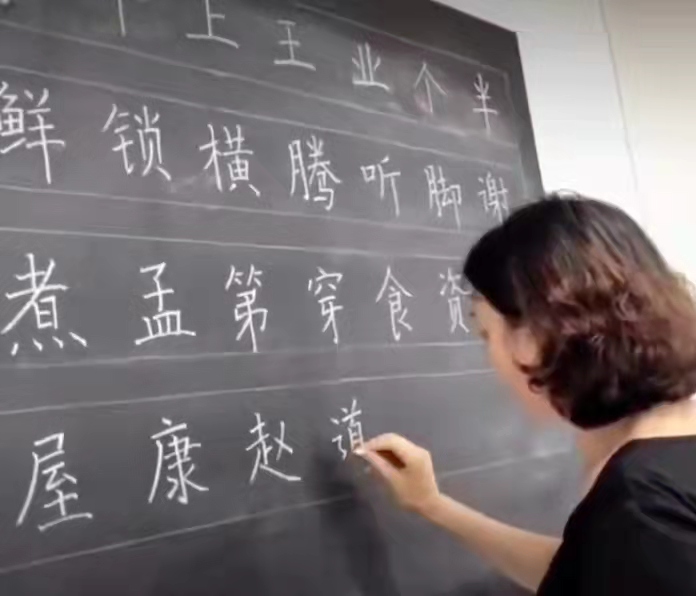 上王业个半
鲜锁横腾听脚谢
煮孟第穿食资
屋康赵道